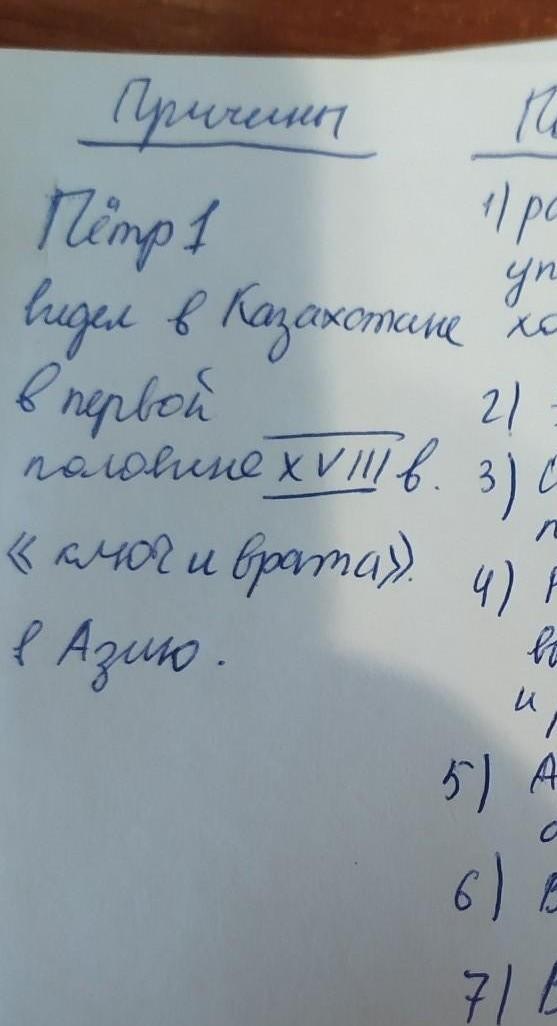 Причины
Пётр 1
видел в Казахстане
в первой
половине XVIII в.
«ключ и врата».
в Азию.
1)
уп
хо
2)
3)
4)
и
5) А
6) В
7) В